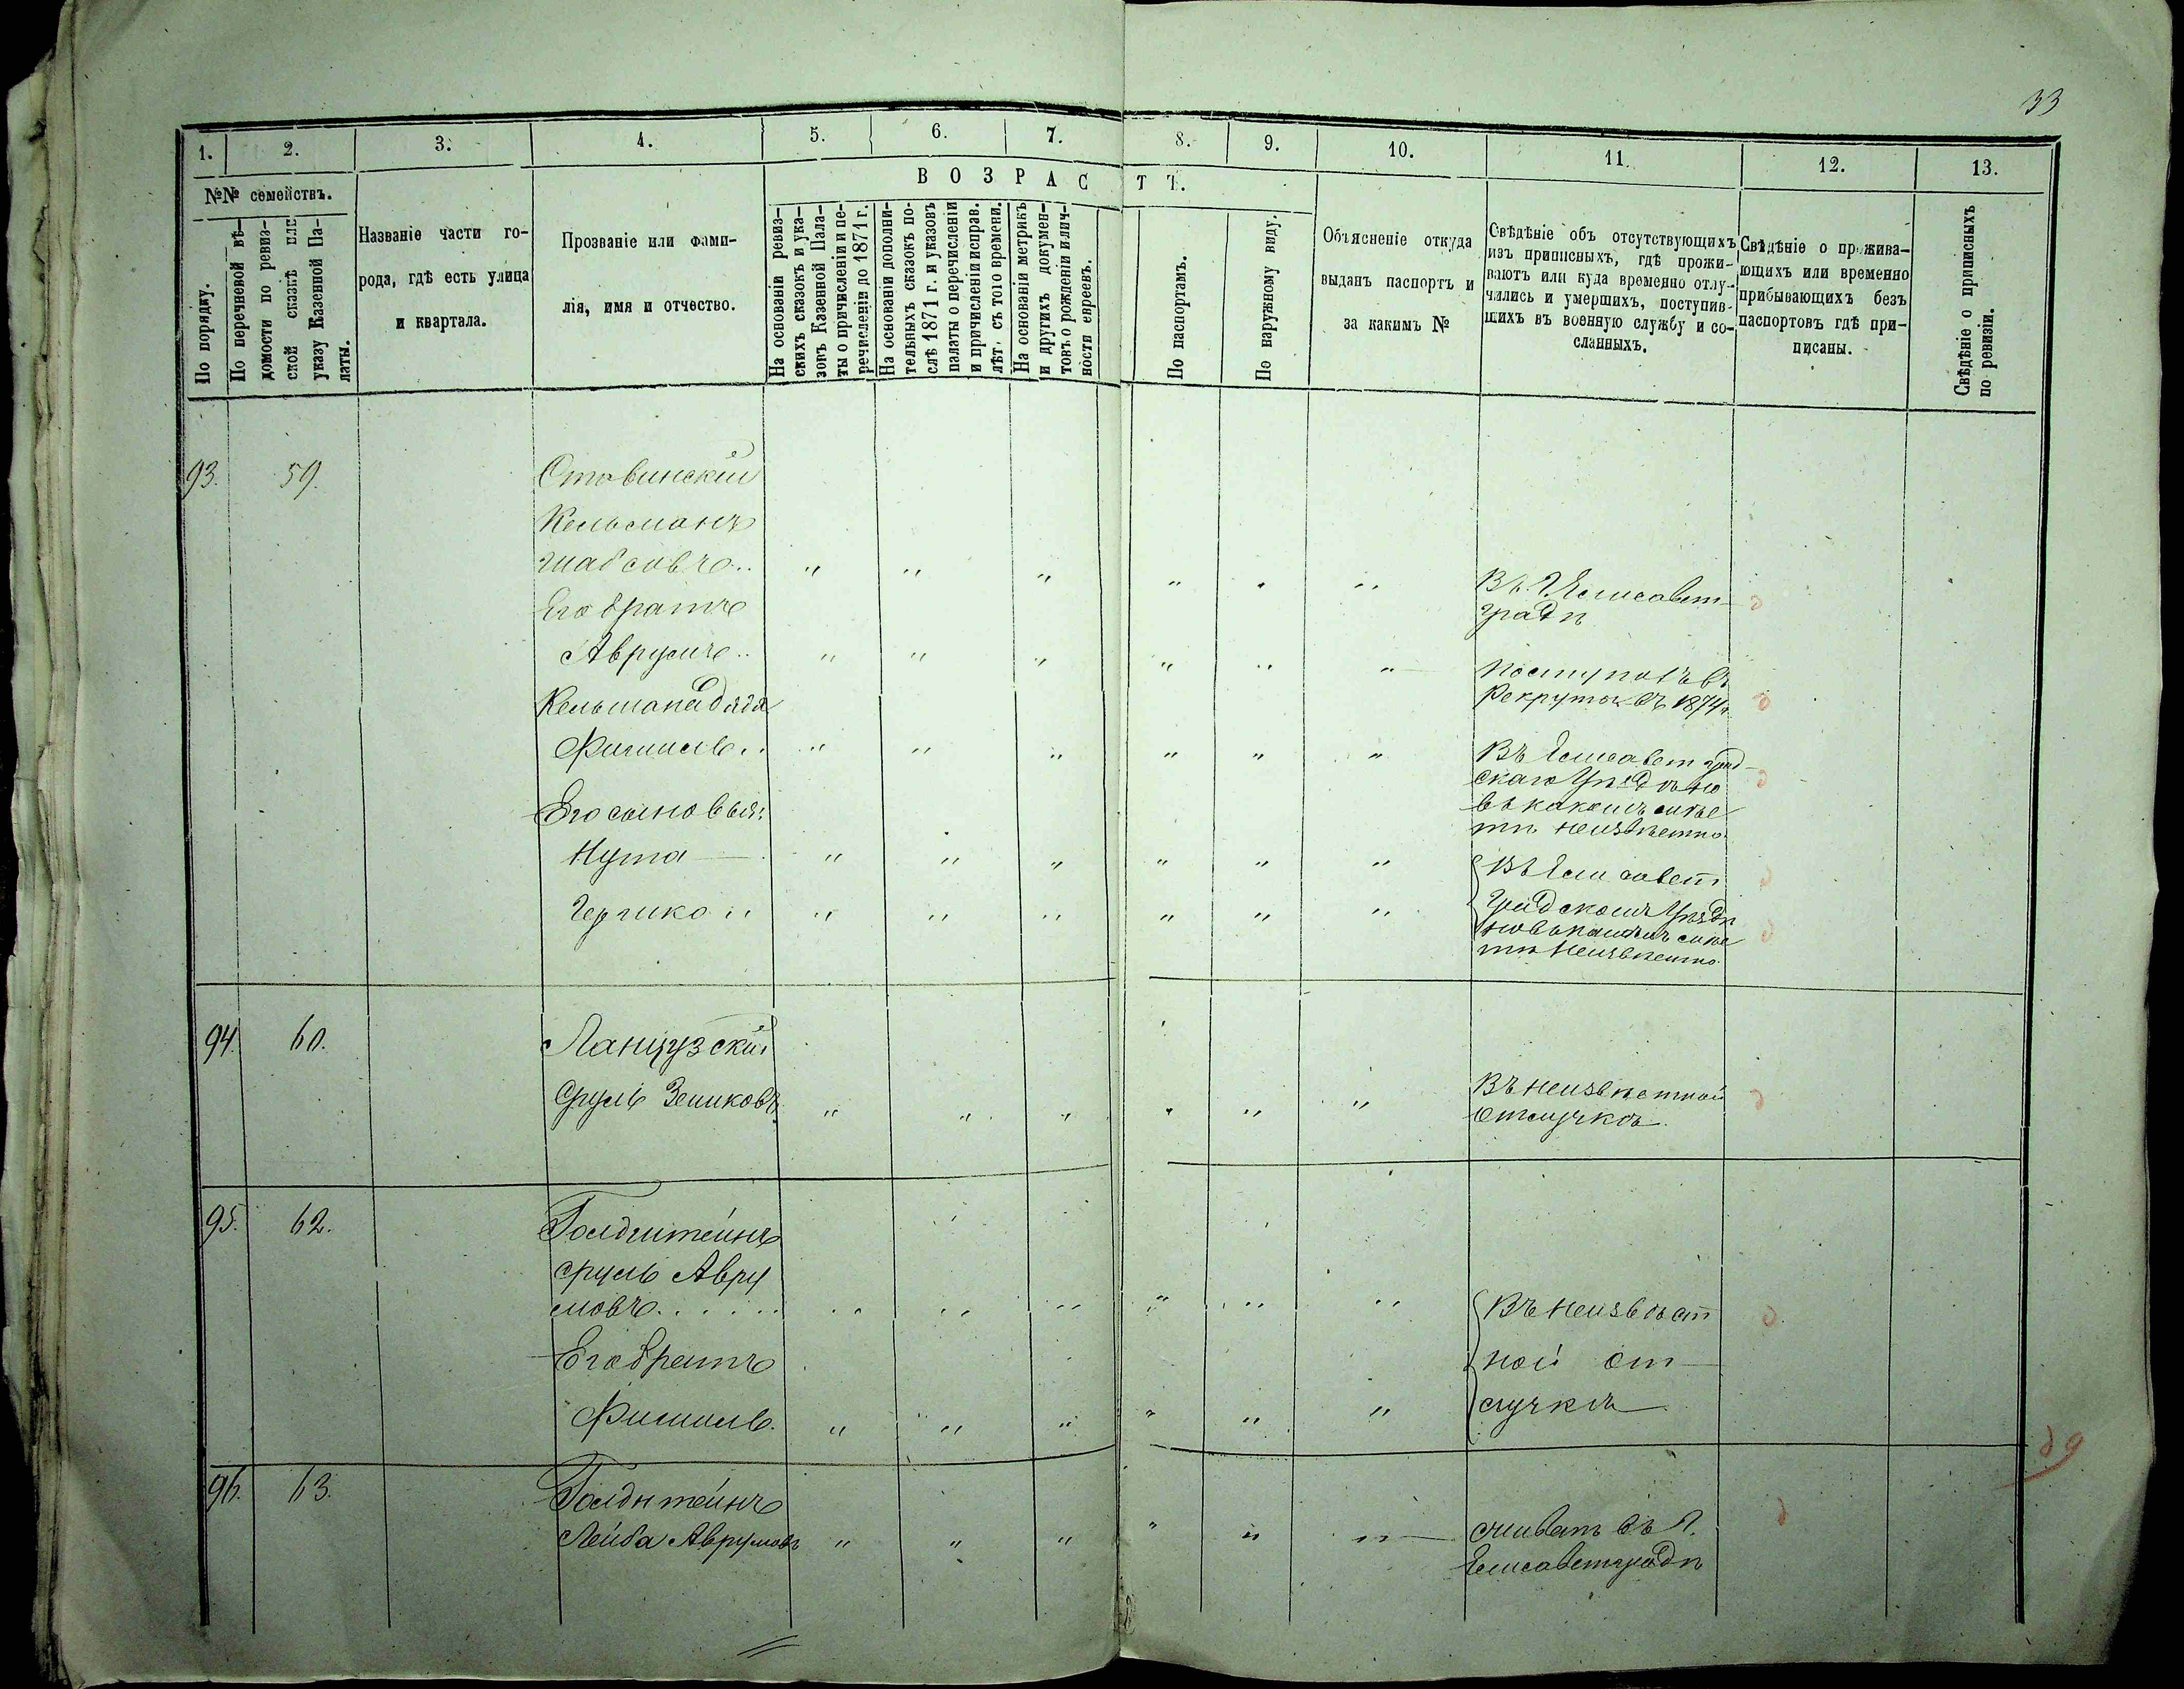 33
1.
2.
3.
4.
5.
6.
7.
8.
9.
10.
11.
12.
13.
№№ семействъ.
ВОЗРАСТЪ.
По порядку.
По перечневой вѣ-
домости по ревиз-
ской сказкѣ или
указу Казенной Па-
латы.
Названіе части го-
рода, гдѣ есть улица
и квартала.
Прозваніе или фами-
лія, имя и отчество.
На основаніи ревиз-
скихъ сказокъ и ука-
зовъ Казенной Пала-
ты о причисленіи и пе-
речисленіи до 1871 г.
На основаніи дополни-
тельныхъ сказокъ по-
слѣ 1871 г. и указовъ
палаты о перечисленіи
и причисленіи исправ.
лѣт. съ того времени.
На основаніи метрикъ
и другихъ докумен-
товъ о рожденіи и лич-
ности евреевъ.
По паспортамъ.
По наружному виду.
Объясненіе откуда
выданъ паспортъ и
за какимъ №
Свѣдѣніе объ отсутствующихъ
изъ приписныхъ, гдѣ прожи-
ваютъ или куда временно отлу-
чились и умершихъ, поступив-
шихъ въ военную службу и со-
сланныхъ.
Свѣдѣніе о прожива-
ющихъ или временно
прибывающихъ безъ
паспортовъ гдѣ при-
писаны.
Свѣдѣніе о приписныхъ
по ревизіи.
93. 59.
Отовинскій
Кельманъ
Шабсовъ.. " " " " " "
Въ Г. Елисавет-
градѣ
Его братъ
Аврумъ.. " " " " " "
Поступилъ въ
Рекруты въ 1874 г.
Кельмана дядя
Фишель.. " " " " " "
Въ Елисаветград-
скаго Уѣздѣ но
въ какомъ мѣс
тѣ неизвѣстно.
Его сыновья:
Нута " " " " " "
Гершко " " " " " "
Въ Елисавет
градскомъ Уѣздѣ
но въ какомъ мѣс
тѣ Неизвѣстно.
94. 60.
Ланцузскій
Сруль Зеликовъ " " " " " "
Въ неизвѣстной
отлучкѣ.
95. 62.
Голдштейнъ
Сруль Авру
мовъ...... " " " " " "
Его братъ
Фишель. " " " " " "
Въ неизвѣст
ной от-
лучкѣ
96. 63.
Голдштейнъ
Лейба Аврумовъ " " " " " "
живетъ въ Г.
Елисаветградѣ